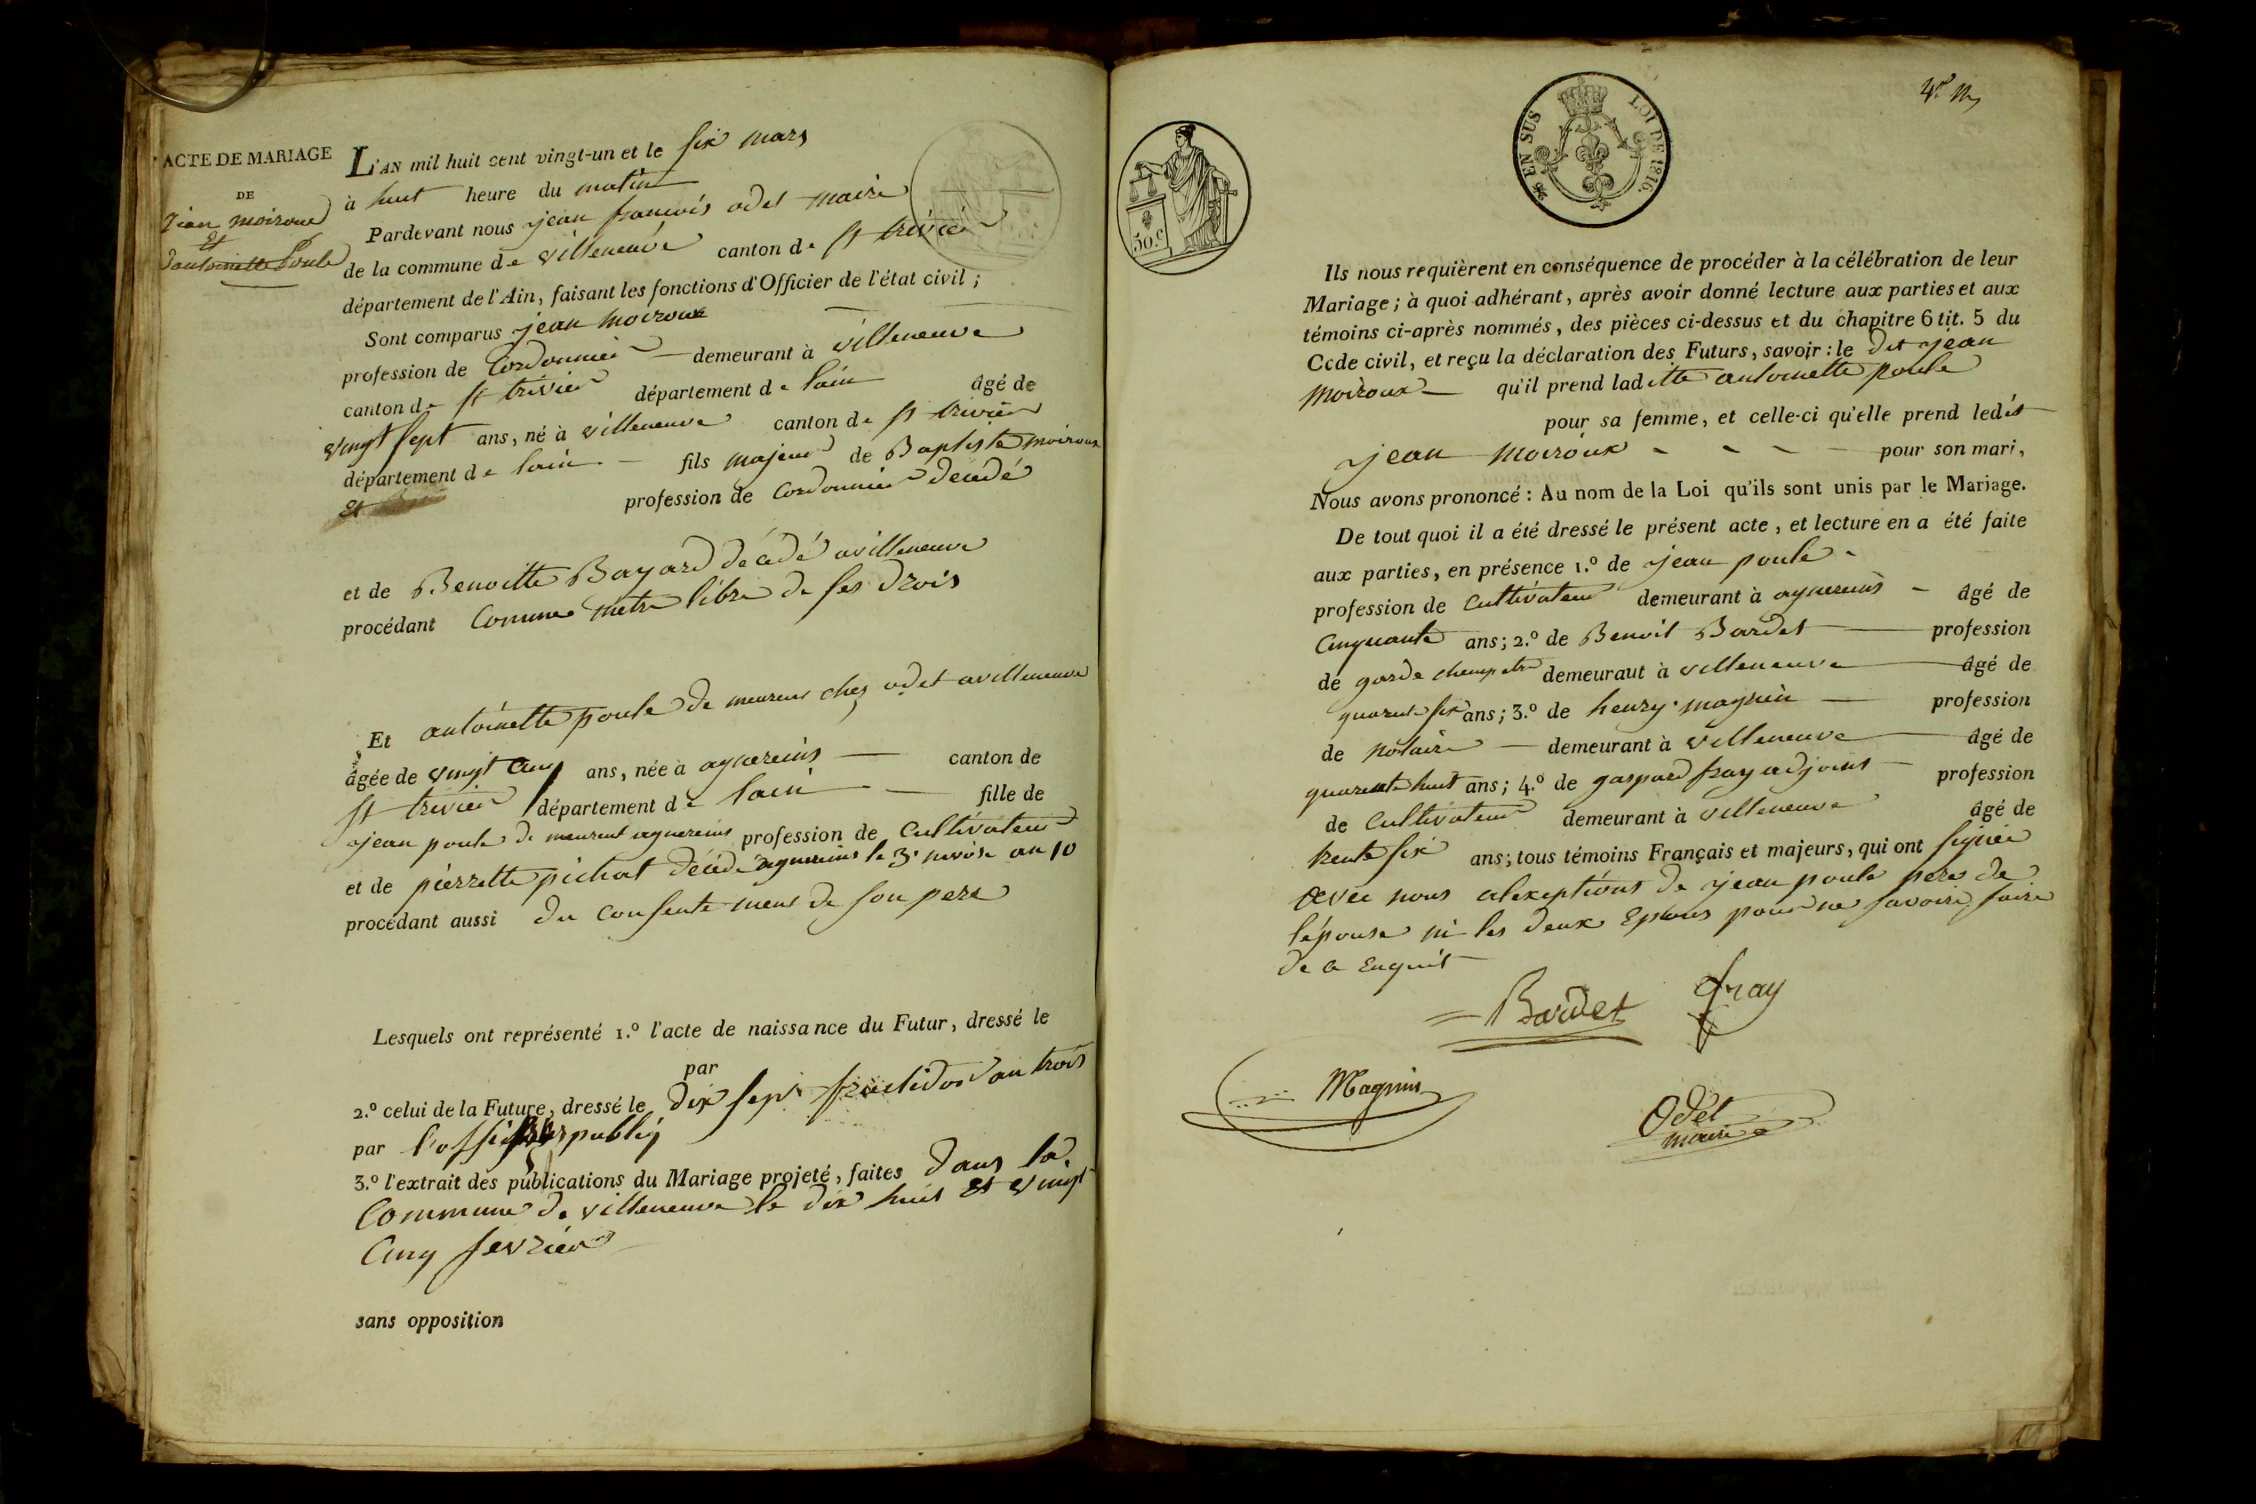 ACTE DE MARIAGE
DE
Jean moiroux
et
dantoinette Poule
L'AN mil huit cent vingt-un et le six mars
à huit heure du matin
Pardevant nous jean francois odet maire
de la commune de villeneuve canton de st trivier
département de l'Ain, faisant les fonctions d'Officier de l'état civil ;
Sont comparus jean moiroux
profession de Cordonnier demeurant à villeneuve
canton de st trivier département de lain âgé de
vingt sept ans, né à villeneuve canton de st trivier
département de lain fils majeur de Baptiste moiroux
et profession de cordonnier décédé
et de Benoitte Bayard décédé avilleneuve
procédant Comme metre libre de ses Drois
Et antoinette poule de meurens chez odet avilleneuve
âgée de vingt cinq ans, née à aguereins canton de
st trivier département de lain fille de
jean poule de meurent aguereins profession de Cultivateur
et de pierrette pichat décédé aguereins le 3 nivose an 10
procédant aussi du consentement de son pere
Lesquels ont représenté 1.º l'acte de naissance du Futur, dressé le
par
2.º celui de la Future, dressé le dix sept fructidor an trois
par l'officier publiq
3.º l'extrait des publications du Mariage projeté, faites dans la
Commune de villeneuve le dix huit et vingt
Cinq fevrier
sans opposition
50.c
EN SUS LOI DE 1816.
Ils nous requièrent en conséquence de procéder à la célébration de leur
Mariage ; à quoi adhérant, après avoir donné lecture aux parties et aux
témoins ci-après nommés, des pièces ci-dessus et du chapitre 6 tit. 5 du
Code civil, et reçu la déclaration des Futurs, savoir : le dit jean
moiroux qu'il prend laditte antoinette poule
pour sa femme, et celle-ci qu'elle prend ledit
jean moiroux pour son mari,
Nous avons prononcé : Au nom de la Loi qu'ils sont unis par le Mariage.
De tout quoi il a été dressé le présent acte, et lecture en a été faite
aux parties, en présence 1.º de jean poule
profession de cultivateur demeurant à aguereins âgé de
Cinquante ans ; 2.º de Benoit Bardet profession
de garde champetre demeuraut à villeneuve âgé de
quarente six ans ; 3.º de henry magnin profession
de notaire demeurant à villeneuve âgé de
quarente huit ans ; 4.º de gaspard fray adjoint profession
de Cultivateur demeurant à villeneuve âgé de
trente six ans ; tous témoins Français et majeurs, qui ont signée
avec nous alexeptions de jean poule pere de
lépouse ni les deux Epoux pour ne savoire faire
de ce Enquit
Bardet fray
Magnin
Odet
maire